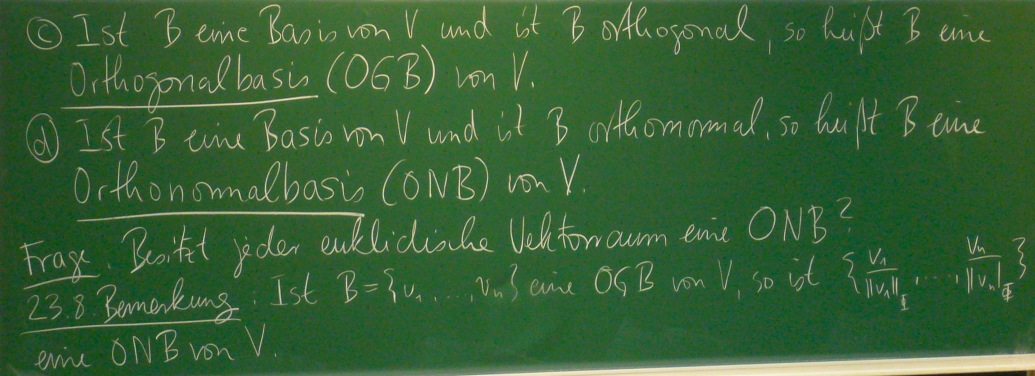 ⓒ Ist B eine Basis von V und ist B orthogonal, so heißt B eine
Orthogonalbasis (OGB) von V.
ⓓ Ist B eine Basis von V und ist B orthonormal, so heißt B eine
Orthonormalbasis (ONB) von V.
Frage: Besitzt jeder euklidische Vektorraum eine ONB?
23.8. Bemerkung: Ist B = {v₁, ..., vₙ} eine OGB von V, so ist {v₁/||v₁||_Φ, ..., vₙ/||vₙ||_Φ}
eine ONB von V.